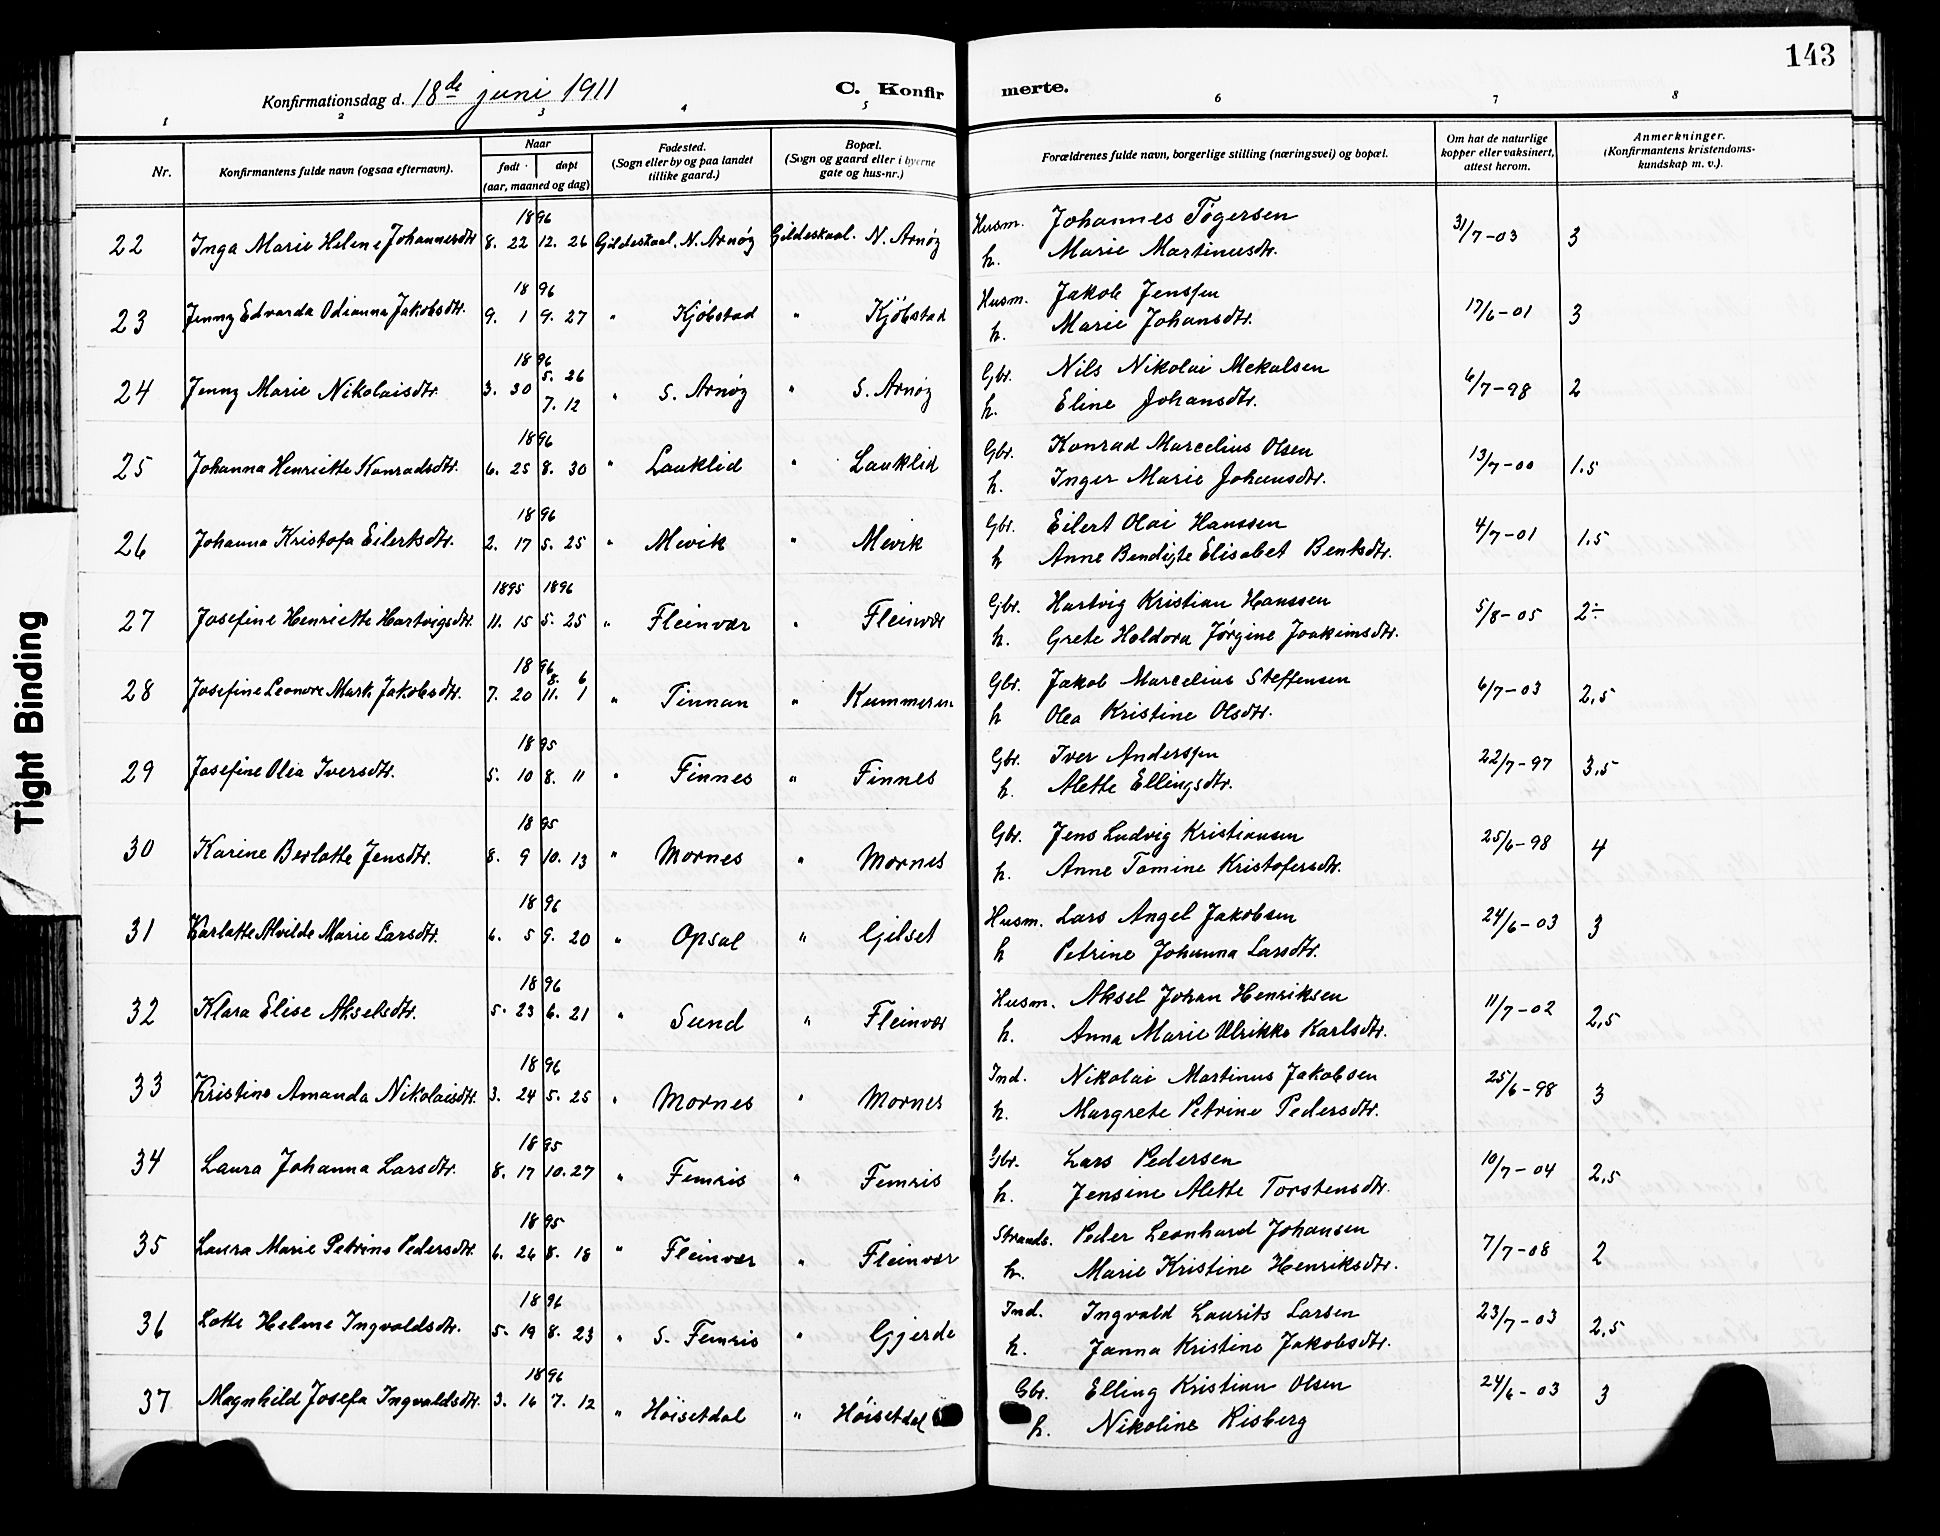 143
Konfirmationsdag d. 18de juni 1911
C. Konfirmerte.
1 2 3 4 5 6 7 8
Nr. Konfirmantens fulde navn (ogsaa efternavn). Naar født døpt (aar, maaned og dag) Fødested. (Sogn eller by og paa landet tillike gaard.) Bopæl. (Sogn og gaard eller i byerne gate og hus-nr.) Forældrenes fulde navn, borgerlige stilling (næringsvei) og bopæl. Om hat de naturlige kopper eller vaksinert, attest herom. Anmerkninger. (Konfirmantens kristendomskundskap m. v.).
1896
22 Inga Marie Helene Johannesdtr. 8. 22 12. 26 Gildeskaal. N. Arnøy Gildeskaal. N. Arnøy Husm. Johannes Tøgersen 31/7-03 3
h. Marie Martinusdtr.
1896
23 Jenny Edvarda Odianna Jakobsdtr. 9. 1 9. 27 " Kjøbstad " Kjøbstad Husm. Jakob Jenssen 17/6-01 3
h. Marie Johansdtr.
1896
24 Jenny Marie Nikolaisdtr. 3. 30 5. 26 7. 12 " S. Arnøy " S. Arnøy Gbr. Nils Nikolai Mekalsen 6/7-98 2
h. Eline Johansdtr.
1896
25 Johanna Henriette Konradsdtr. 6. 25 8. 30 " Lauklid " Lauklid Gbr. Konrad Marcelius Olsen 13/7-00 1.5
h. Inger Marie Johansdtr.
1896
26 Johanna Kristofa Eilertsdtr. 2. 17 5. 25 " Mevik " Mevik Gbr. Eilert Olai Hanssen 4/7-01 1.5
h Anne Bendigte Elisabet Bentsdtr.
1895 1896
27 Josefine Henriette Hartvigsdtr. 11. 15 5. 25 " Fleinvær " Fleinvær Gbr. Hartvig Kristian Hanssen 5/8-05 2÷
h. Grete Haldora Jørgine Joakimsdtr.
1896
28 Josefine Leonore Mark. Jakobsdtr. 7. 20 8. 6 11. 1 " Finnan " Kummeren Gbr. Jakob Marcelius Steffensen 6/7-03 2,5
h Olea Kristine Olsdtr.
1895
29 Josefine Olea Iversdtr. 5. 10 8. 11 " Finnes " Finnes Gbr. Iver Anderssen 22/7-97 3,5
h. Alette Ellingsdtr.
1895
30 Karine Berlotte Jensdtr. 8. 9 10. 13 " Mornes " Mornes Gbr. Jens Ludvig Kristiansen 25/6-98 4
h. Anne Tomine Kristofersdtr.
1896
31 Karlotte Alvilde Marie Larsdtr. 6. 5 9. 20 " Opsal " Gilset Husm. Lars Angel Jakobsen 24/6-03 3
h Petrine Johanna Larsdtr.
1896
32 Klara Elise Akselsdtr. 5. 23 6. 21 " Sund " Fleinvær Husm. Aksel Johan Henriksen 11/7-02 2,5
h. Anna Marie Ulrikke Karlsdtr.
1896
33 Kristine Amanda Nikolaisdtr. 3. 24 5. 25 " Mornes " Mornes Ind. Nikolai Martinus Jakobsen 25/6-98 3
h. Margrete Petrine Pedersdtr.
1895
34 Laura Johanna Larsdtr. 8. 17 10. 27 " Femris " Femris Gbr. Lars Pedersen 10/7-04 2,5
h. Jensine Alette Torstensdtr.
1895
35 Laura Marie Petrine Pedersdtr. 6. 26 8. 18 " Fleinvær " Fleinvær Strands. Peder Leonhard Johansen 7/7-08 2
h. Marie Kristine Henriksdtr.
1896
36 Lotte Helene Ingvaldsdtr. 5. 19 8. 23 " S. Femris " Gjerde Ind. Ingvald Laurits Larsen 23/7-03 2,5
h. Janna Kristine Jakobsdtr.
1896
37 Magnhild Josefa Ingvaldsdtr. 3. 16 7. 12 " Høisetdal " Høisetdal Gbr. Elling Kristian Olsen 24/6-03 3
h. Nikoline Risberg
Tight Binding